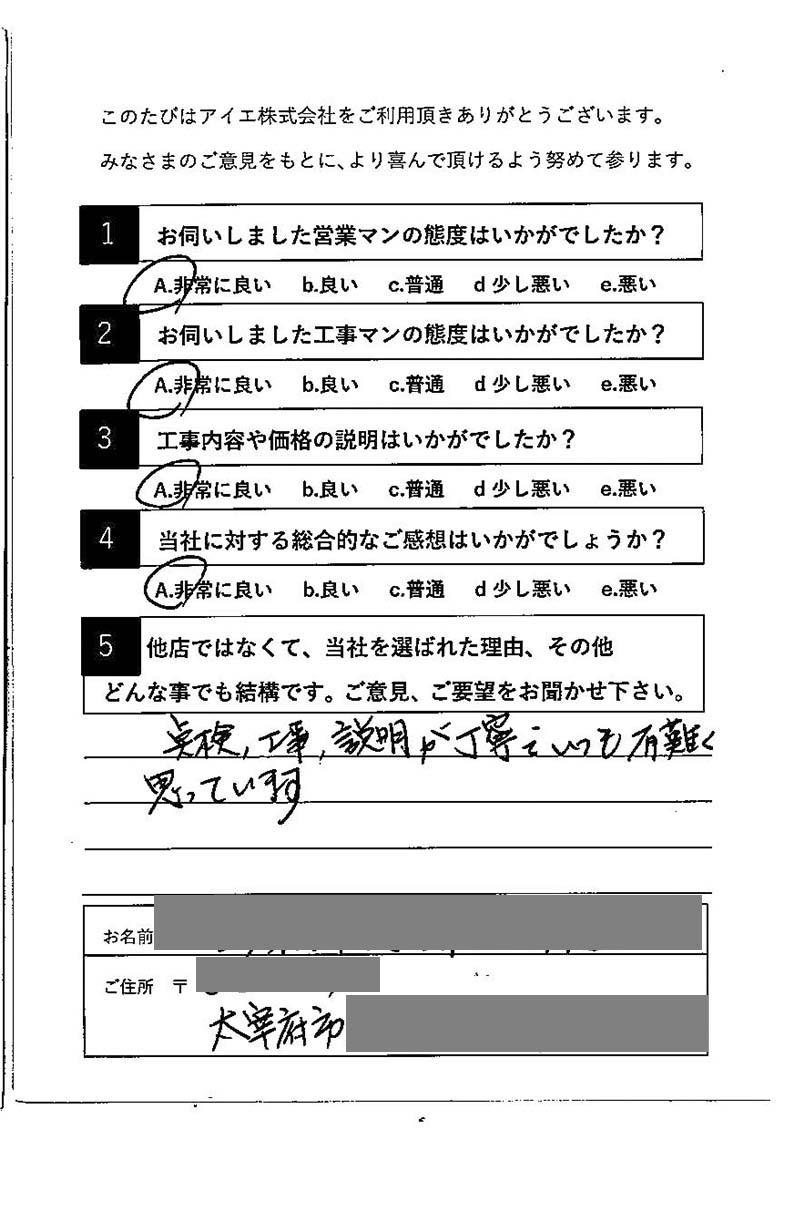 このたびはアイエ株式会社をご利用頂きありがとうございます。
みなさまのご意見をもとに、より喜んで頂けるよう努めて参ります。
1 お伺いしました営業マンの態度はいかがでしたか？
A.非常に良い b.良い c.普通 d 少し悪い e.悪い
2 お伺いしました工事マンの態度はいかがでしたか？
A.非常に良い b.良い c.普通 d 少し悪い e.悪い
3 工事内容や価格の説明はいかがでしたか？
A.非常に良い b.良い c.普通 d 少し悪い e.悪い
4 当社に対する総合的なご感想はいかがでしょうか？
A.非常に良い b.良い c.普通 d 少し悪い e.悪い
5 他店ではなくて、当社を選ばれた理由、その他
どんな事でも結構です。ご意見、ご要望をお聞かせ下さい。
点検,工事,説明が丁寧でいつも有難く
思っています
お名前
ご住所 〒
太宰府市